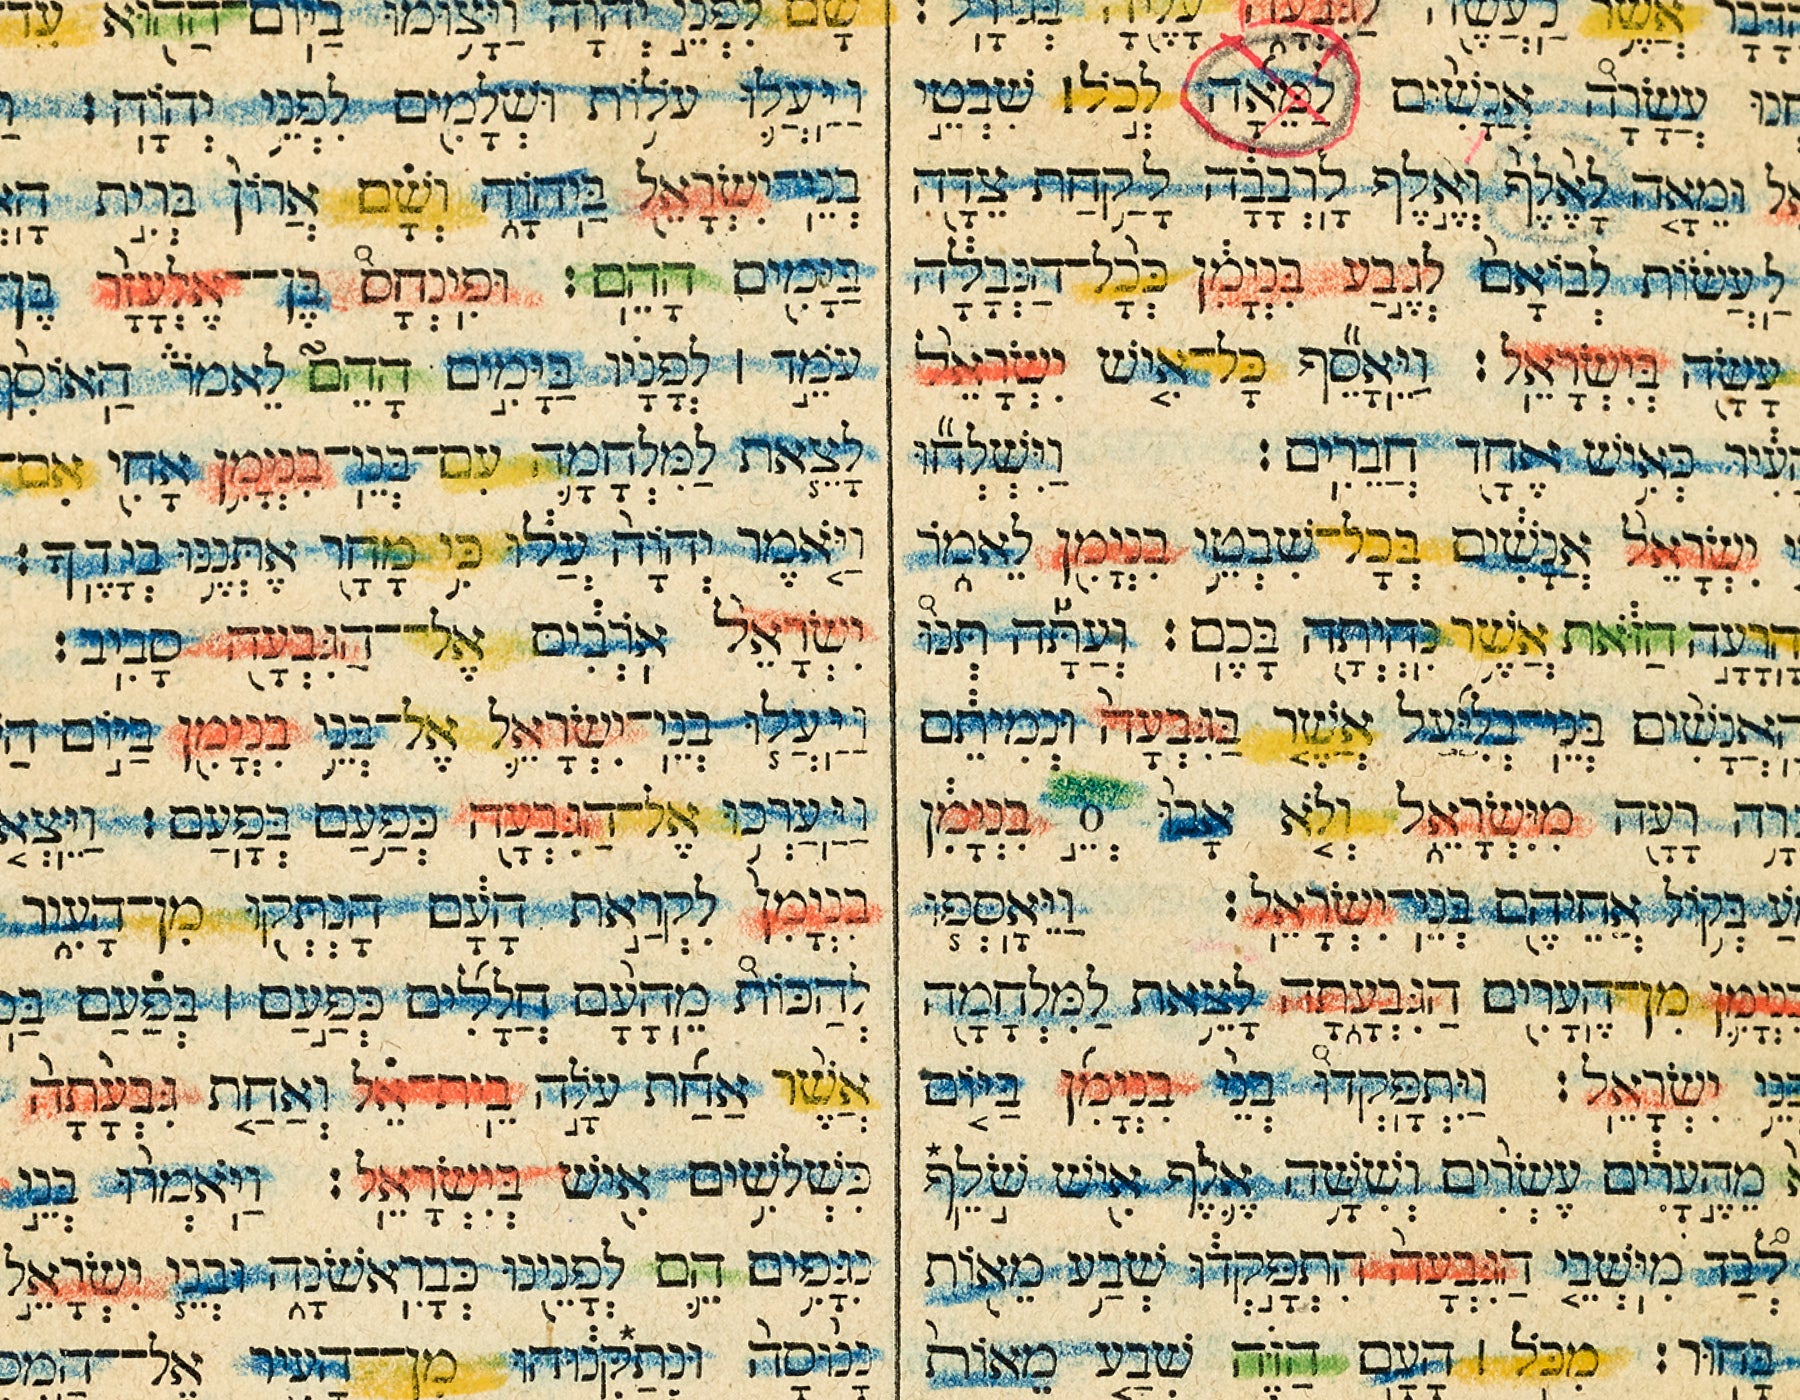 הַדָּבָר אֲשֶׁר נַעֲשֶׂה לַגִּבְעָה עָלֶיהָ בְּגוֹרָל׃
עֲשָׂרָה אֲנָשִׁים לַמֵּאָה לְכֹל׀ שִׁבְטֵי
וּמֵאָה לָאֶלֶף וְאֶלֶף לָרְבָבָה לָקַחַת צֵדָה
לַעֲשׂוֹת לְבוֹאָם לְגֶבַע בִּנְיָמִן כְּכָל־הַנְּבָלָה
עָשָׂה בְּיִשְׂרָאֵל׃ וַיֵּאָסֵף כָּל־אִישׁ יִשְׂרָאֵל
הָעִיר כְּאִישׁ אֶחָד חֲבֵרִים׃ וַיִּשְׁלְחוּ
יִשְׂרָאֵל אֲנָשִׁים בְּכָל־שִׁבְטֵי בִנְיָמִן לֵאמֹר
הָרָעָה הַזֹּאת אֲשֶׁר נִהְיְתָה בָּכֶם׃ וְעַתָּה תְּנוּ
הָאֲנָשִׁים בְּנֵי־בְלִיַּעַל אֲשֶׁר בַּגִּבְעָה וּנְמִיתֵם
רָעָה מִיִּשְׂרָאֵל וְלֹא אָבוּ ○ בִּנְיָמִן
בְּקוֹל אֲחֵיהֶם בְּנֵי־יִשְׂרָאֵל׃ וַיֵּאָסְפוּ
בִנְיָמִן מִן־הֶעָרִים הַגִּבְעָתָה לָצֵאת לַמִּלְחָמָה
בְּנֵי יִשְׂרָאֵל׃ וַיִּתְפָּקְדוּ בְנֵי בִנְיָמִן בַּיּוֹם
מֵהֶעָרִים עֶשְׂרִים וְשִׁשָּׁה אֶלֶף אִישׁ שֹׁלֵף*
לְבַד מִיֹּשְׁבֵי הַגִּבְעָה הִתְפָּקְדוּ שְׁבַע מֵאוֹת
בָּחוּר׃ מִכֹּל׀ הָעָם הַזֶּה שְׁבַע מֵאוֹת
שָׁם לִפְנֵי יְהוָה וַיָּצוּמוּ בַיּוֹם־הַהוּא עַד־
וַיַּעֲלוּ עֹלוֹת וּשְׁלָמִים לִפְנֵי יְהוָה׃
בְנֵי־יִשְׂרָאֵל בַּיהוָה וְשָׁם אֲרוֹן בְּרִית
בַּיָּמִים הָהֵם׃ וּפִינְחָס בֶּן־אֶלְעָזָר בֶּן־
עֹמֵד׀ לְפָנָיו בַּיָּמִים הָהֵם לֵאמֹר הַאוֹסִף
לָצֵאת לַמִּלְחָמָה עִם־בְּנֵי־בִנְיָמִן אָחִי אִם־
וַיֹּאמֶר יְהוָה עֲלוּ כִּי מָחָר אֶתְּנֶנּוּ בְיָדֶךָ׃
יִשְׂרָאֵל אֹרְבִים אֶל־הַגִּבְעָה סָבִיב׃
וַיַּעֲלוּ בְנֵי־יִשְׂרָאֵל אֶל־בְּנֵי בִנְיָמִן בַּיּוֹם
וַיַּעַרְכוּ אֶל־הַגִּבְעָה כְּפַעַם בְּפָעַם׃ וַיֵּצְאוּ
בִנְיָמִן לִקְרַאת הָעָם הָנְתְּקוּ מִן־הָעִיר
לְהַכּוֹת מֵהָעָם חֲלָלִים כְּפַעַם׀ בְּפַעַם
אֲשֶׁר אַחַת עֹלָה בֵית־אֵל וְאַחַת גִּבְעָתָה
כִּשְׁלֹשִׁים אִישׁ בְּיִשְׂרָאֵל׃ וַיֹּאמְרוּ בְּנֵי
נִגָּפִים הֵם לְפָנֵינוּ כְּבָרִאשֹׁנָה וּבְנֵי יִשְׂרָאֵל
נָנוּסָה וּנְתַקְּנוּהוּ* מִן־הָעִיר אֶל־